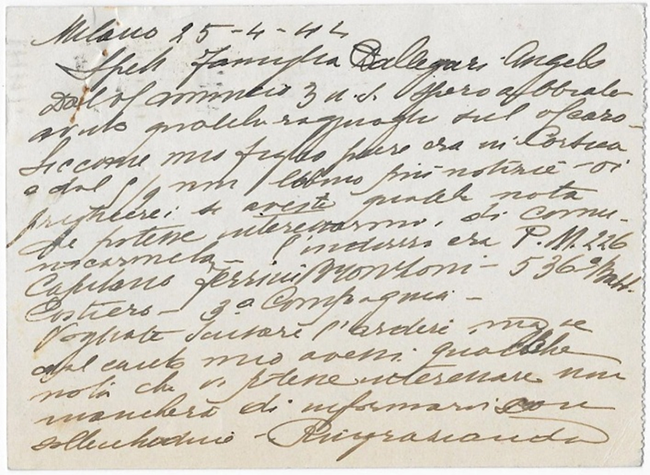 Milano 25-4-44
Spett Famiglia Callegari Angelo
Dall annuncio 3 u.s. spero abbiate
avuto qualche ragguaglio sul caro
Siccome mio figlio pure era in Corsica
e dal 8/9 non ho più notizie - vi
pregherei se aveste qualche nota
che potesse interessarmi, di comu-
nicarmela - l'indirizzo era P.M. 226
Capitano Ferrini Montoni - 536° Batt.
Costiero - 3ª Compagnia -
Vogliate scusare l'ardire ma se
dal canto mio avessi qualche
nota che vi potesse interessare non
mancherò di informarvi con
sollecitudine - Ringraziando